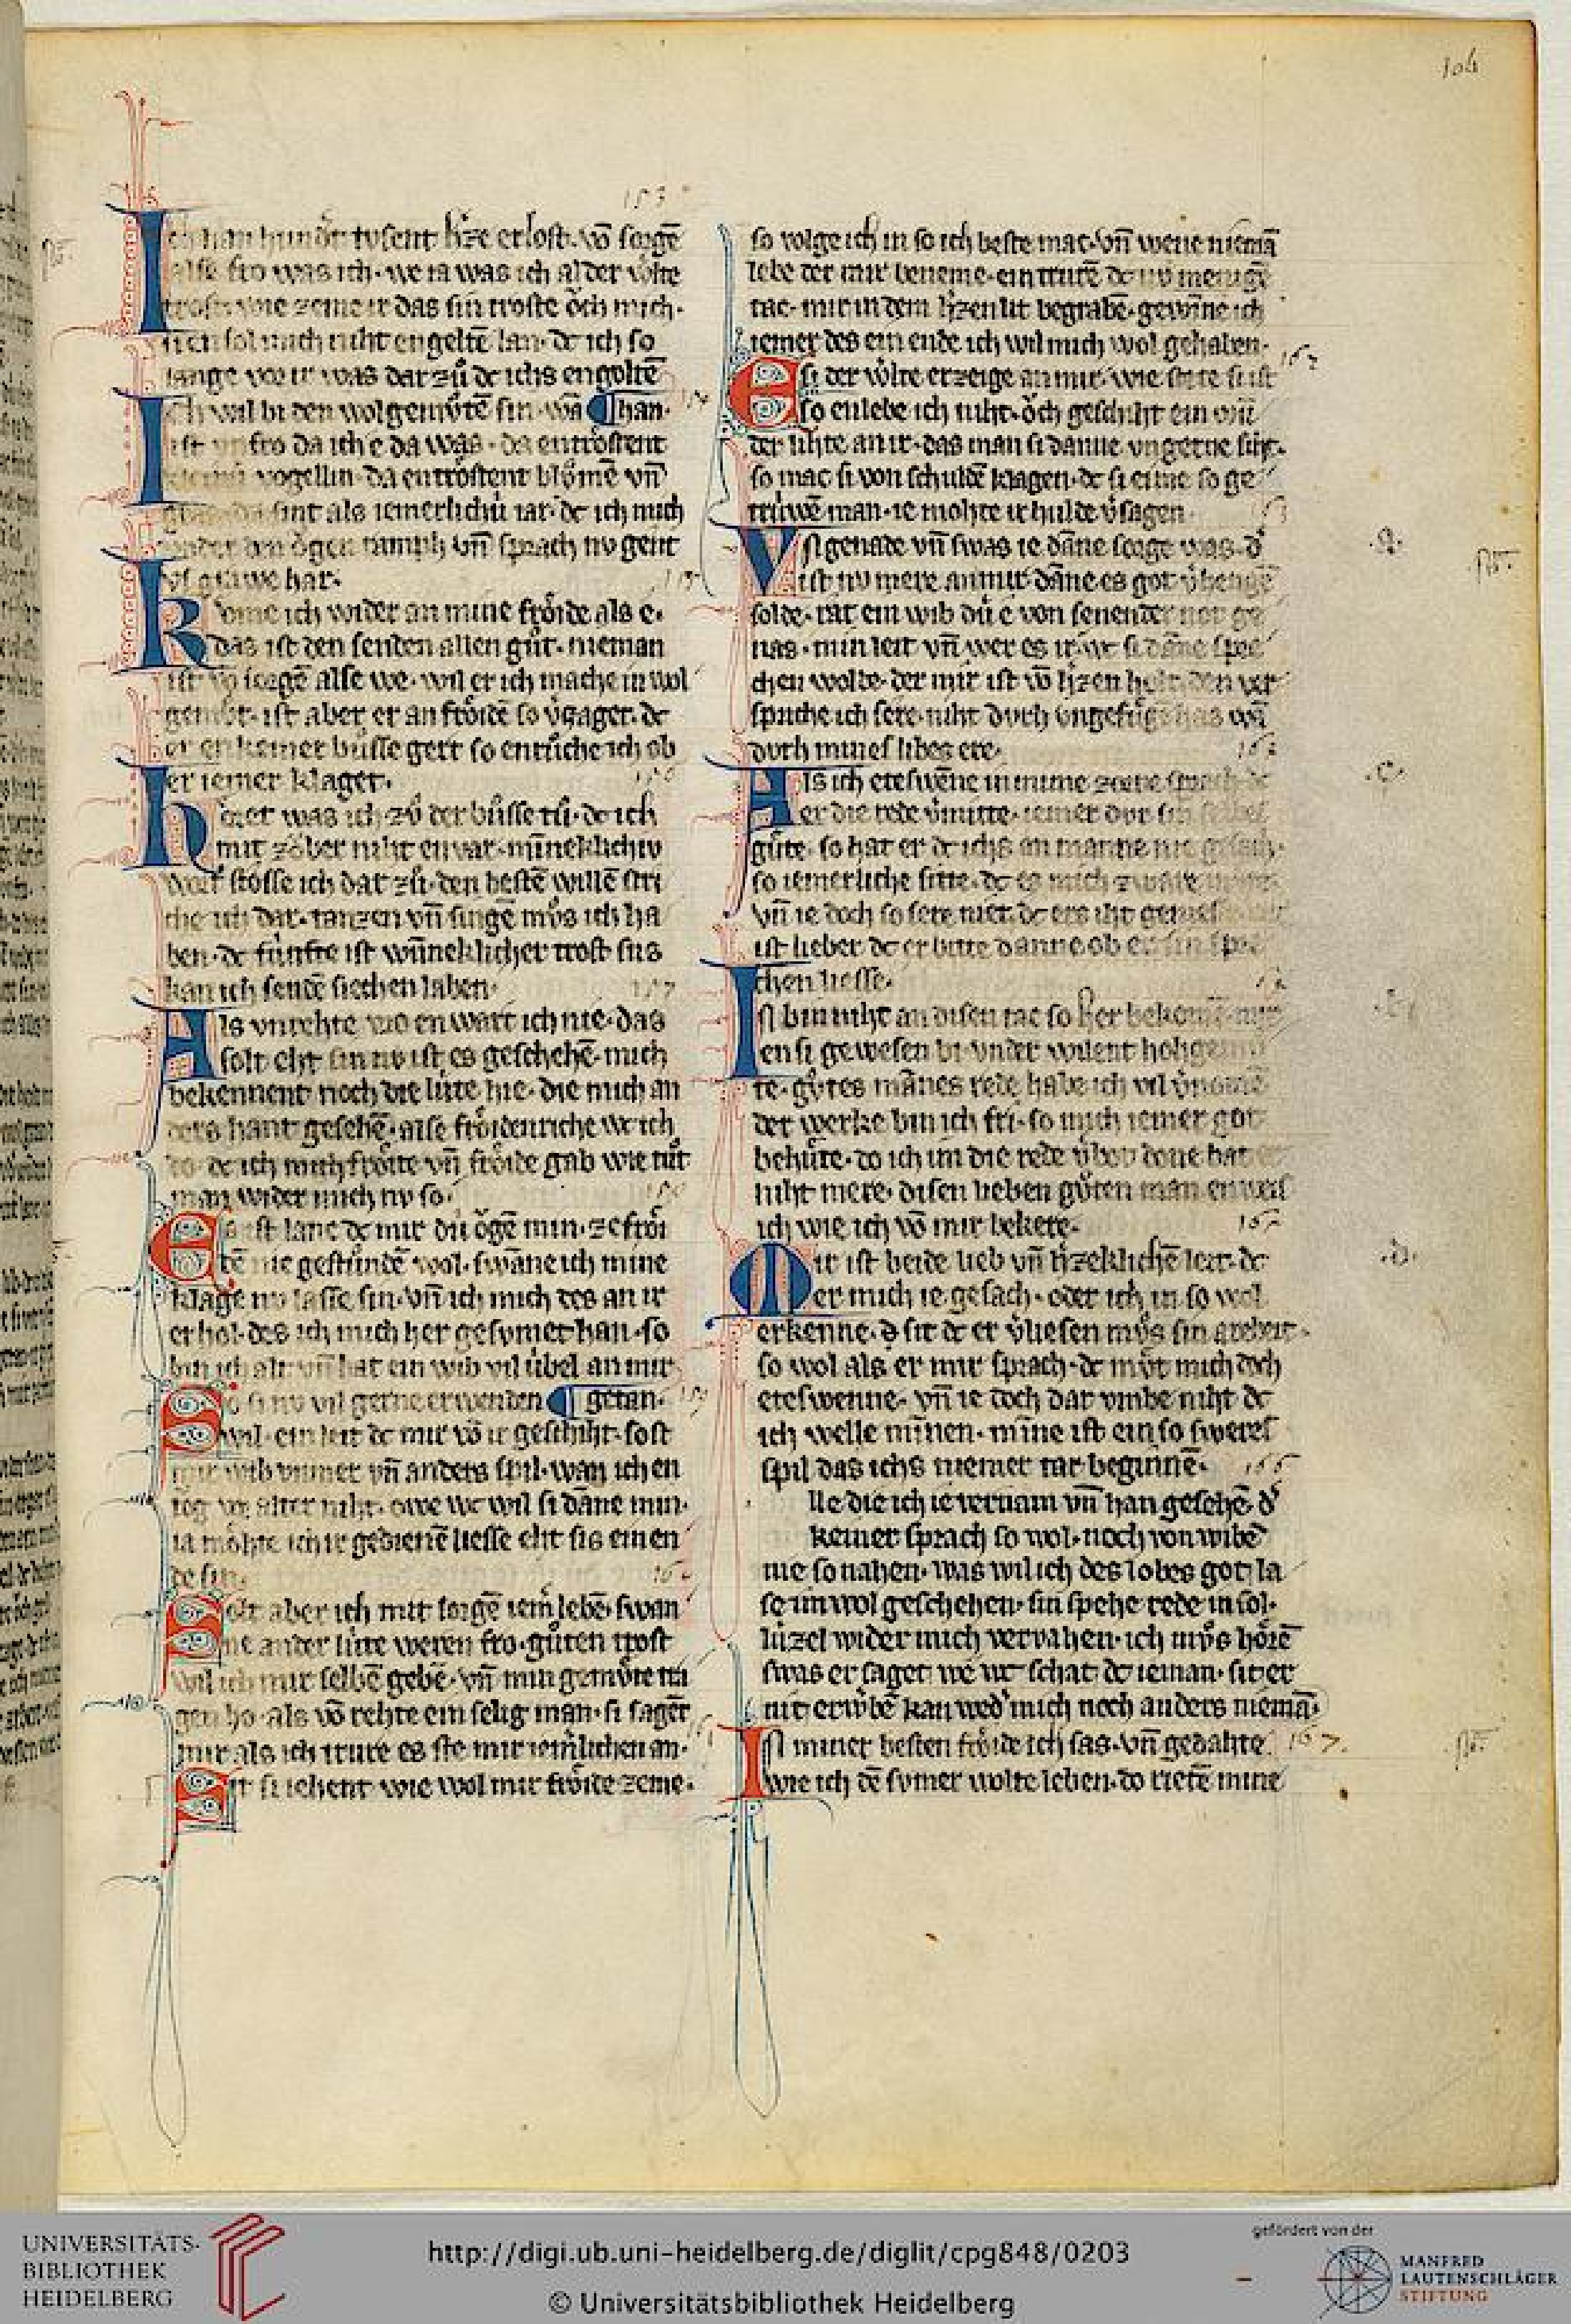 104
153
Ich han hundˢt tvsent hˢze erlost. võ sorgē
alse fro was ich. we ia was ich al der wͤlte
trost. wie zeme ir das sin troste ǒch mich.
nen sol mich niht engeltē lan. dc ich so
lange vō ir was dar zů dc ichs engoltē
Ich wil bi den wolgemůtē sin. wā ¶ han.
ist vnfro da ich e da was. da entrostent
kleinú vogellin. da entrostent blůmē vn̄
gras da sint als iemerlichú iar. dc ich mich
vnder den ǒgen ramph vn̄ sprach nv gent
vs grawe har.
Kome ich wider an mine frǒide als e.
das ist den senden allen gůt. nieman
ist võ sorgē alse we. wil er ich mache in wol
gemůt. ist aber er an frǒidē so v̓zaget. dc
er enkeiner bůsse gert so enrůche ich ob
er iemer klaget.
Hǒret was ich zů der bůsse tů. dc ich
mit zǒber niht envar. mīneklichiv
wort stosse ich dar zů. den bestē willē stri
che ich dar. tanzen vn̄ singē můs ich ha
ben. dc fúnfte ist wn̄neklicher trost sus
kan ich sendē siechen laben. 157
Als vnrehte vro en wart ich nie. das
solt eht sin nv ist es geschehē. mich
bekennent noch die lúte hie. die mich an
ders hant gesehē. alse frǒidenriche wc ich
do. dc ich mich frǒite vn̄ frǒide gab wie tůt
man wider mich nv so.
Es ist lanc dc mir dú ǒgē min. ze frǒi
dē nie gestůndē wol. swāne ich mine
klage nv lasse sin. vn̄ ich mich des an ir
erhol. des ich mich her gesvmet han. so
bin ich alt. vn̄ hat ein wib vil úbel an mir
So si nv vil gerne erwenden ¶ getan.
wil. ein leit dc mir võ ir geschiht. so ist
mir wib vnmer vn̄ anders spil. wan ich en
tǒg vor alter niht. owe wc wil si dāne min.
ia mǒhte ich ir gedienē liesse eht sis einen
de sin.
Solt aber ich mit sorgē iem̓ lebē. swan
ne ander lúte weren fro. gůten trost
wil ich mir selbē gebē. vn̄ min gemůte tra
gen ho. als võ rehte ein selig man. si sagēt
mir als ich trure es ste mir iem̓lichen an.
Sit si iehent wie wol mir frǒide zeme.
so volge ich in so ich beste mac. vn̄ weiē niemā
lebe der mir beneme. ein trurē dc nv menigē
tac. mir in dem hˢzen lit begrabē. gewīne ich
iemer des ein ende ich wil mich wol gehaben.
Es si der wͤlte erzeige an mir. wie stete si ist
so enlebe ich niht. ǒch geschiht ein wn̄
der lihte an ir. das man si danne vngerne siht.
so mac si von schuldē klagen. dc si eime so ge
trúwē man. ie mohte ir hulde v̓sagen.
Vf genade vn̄ swas ie dāne sorge was. dˢ
ist nv mere an mir. dāne es got v̓hengē
solde. rat ein wib dú e von senender not ge
nas. min leit vn̄ wer es ir. wc si dāne spre
chen wolde. der mir ist võ hˢzen holt. den ver
spriche ich sere. niht dvrh vngefůgē has. wā
dvrh mines libes ere.
Als ich eteswēne in mime zorne sprach. dc
er die rede v̓mitte. iemer dvr sin selbes
gůte. so hat er dc ichs an manne nie gesach.
so iemerliche sitte. dc es mich zware
vn̄ ie doch so sere niet. dc ers iht genies
ist lieber dc er bitte danne ob er sin spre
chen liesse.
Ich bin niht an disen tac so her bekomē. mir
en si gewesen bi. vnder wilent hohgemů
te. gůtes mānes rede habe ich vil v̓nomē
der werke bin ich fri. so mich iemer got
behůte. do ich im die rede v̓bot done bat er
niht mere. disen lieben gůten man enweis
ich wie ich võ mir bekere.
Mir ist beide lieb vn̄ hˢzeklichē leit. dc
er mich ie gesach. oder ich in so wol
erkenne. sit dc er v̓liesen můs sin arebeit.
so wol als er mir sprach. dc mǔt mich doch
eteswenne. vn̄ ie doch dar vmbe niht dc
ich welle mīnen. mīne ist ein so sweres
spil das ichs niemer tar beginnē. 165
lle die ich ie vernam vn̄ han gesehē. dˢ
keiner sprach so wol. noch von wibē
nie so nahen. was wil ich des lobes got la
se im wol geschehen. sin spehe rede in sol.
lúzel wider mich vervahen. ich můs hǒrē
swas er saget. we wc schat dc ieman. sit er
nit erwͤbē kan wedˢ mich noch anders niemā.
In miner besten frǒide ich sas. vn̄ gedahte 167.
wie ich dē svmer wolte leben. do rietē mine
.a.
.c.
.b.
.d.
UNIVERSITÄTS-
BIBLIOTHEK
HEIDELBERG
http://digi.ub.uni-heidelberg.de/diglit/cpg848/0203
© Universitätsbibliothek Heidelberg
gefördert von der
MANFRED
LAUTENSCHLÄGER
STIFTUNG